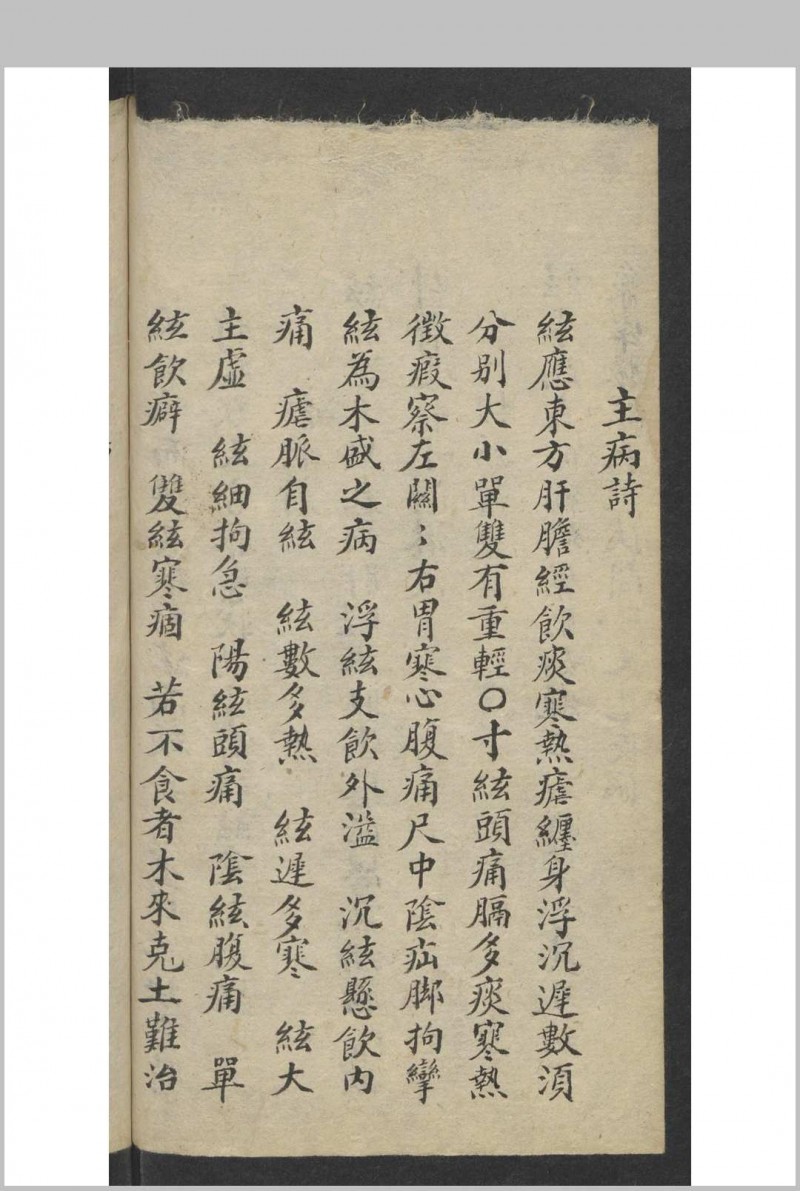 主病詩
絃應東方肝膽經飲痰寒熱瘧纏身浮沉遲數湏
分别大小單雙有重輕○寸絃頭痛膈多痰寒熱
徴瘕察左關〻右胃寒心腹痛尺中陰疝脚拘攣
絃為木盛之病　浮絃支飲外溢　沉絃懸飲内
痛　瘧脈自絃　絃數多熱　絃遲多寒　絃大
主虚　絃細拘急　陽絃頭痛　陰絃腹痛　單
絃飲癖　雙絃寒痼　若不食者木來克土難治